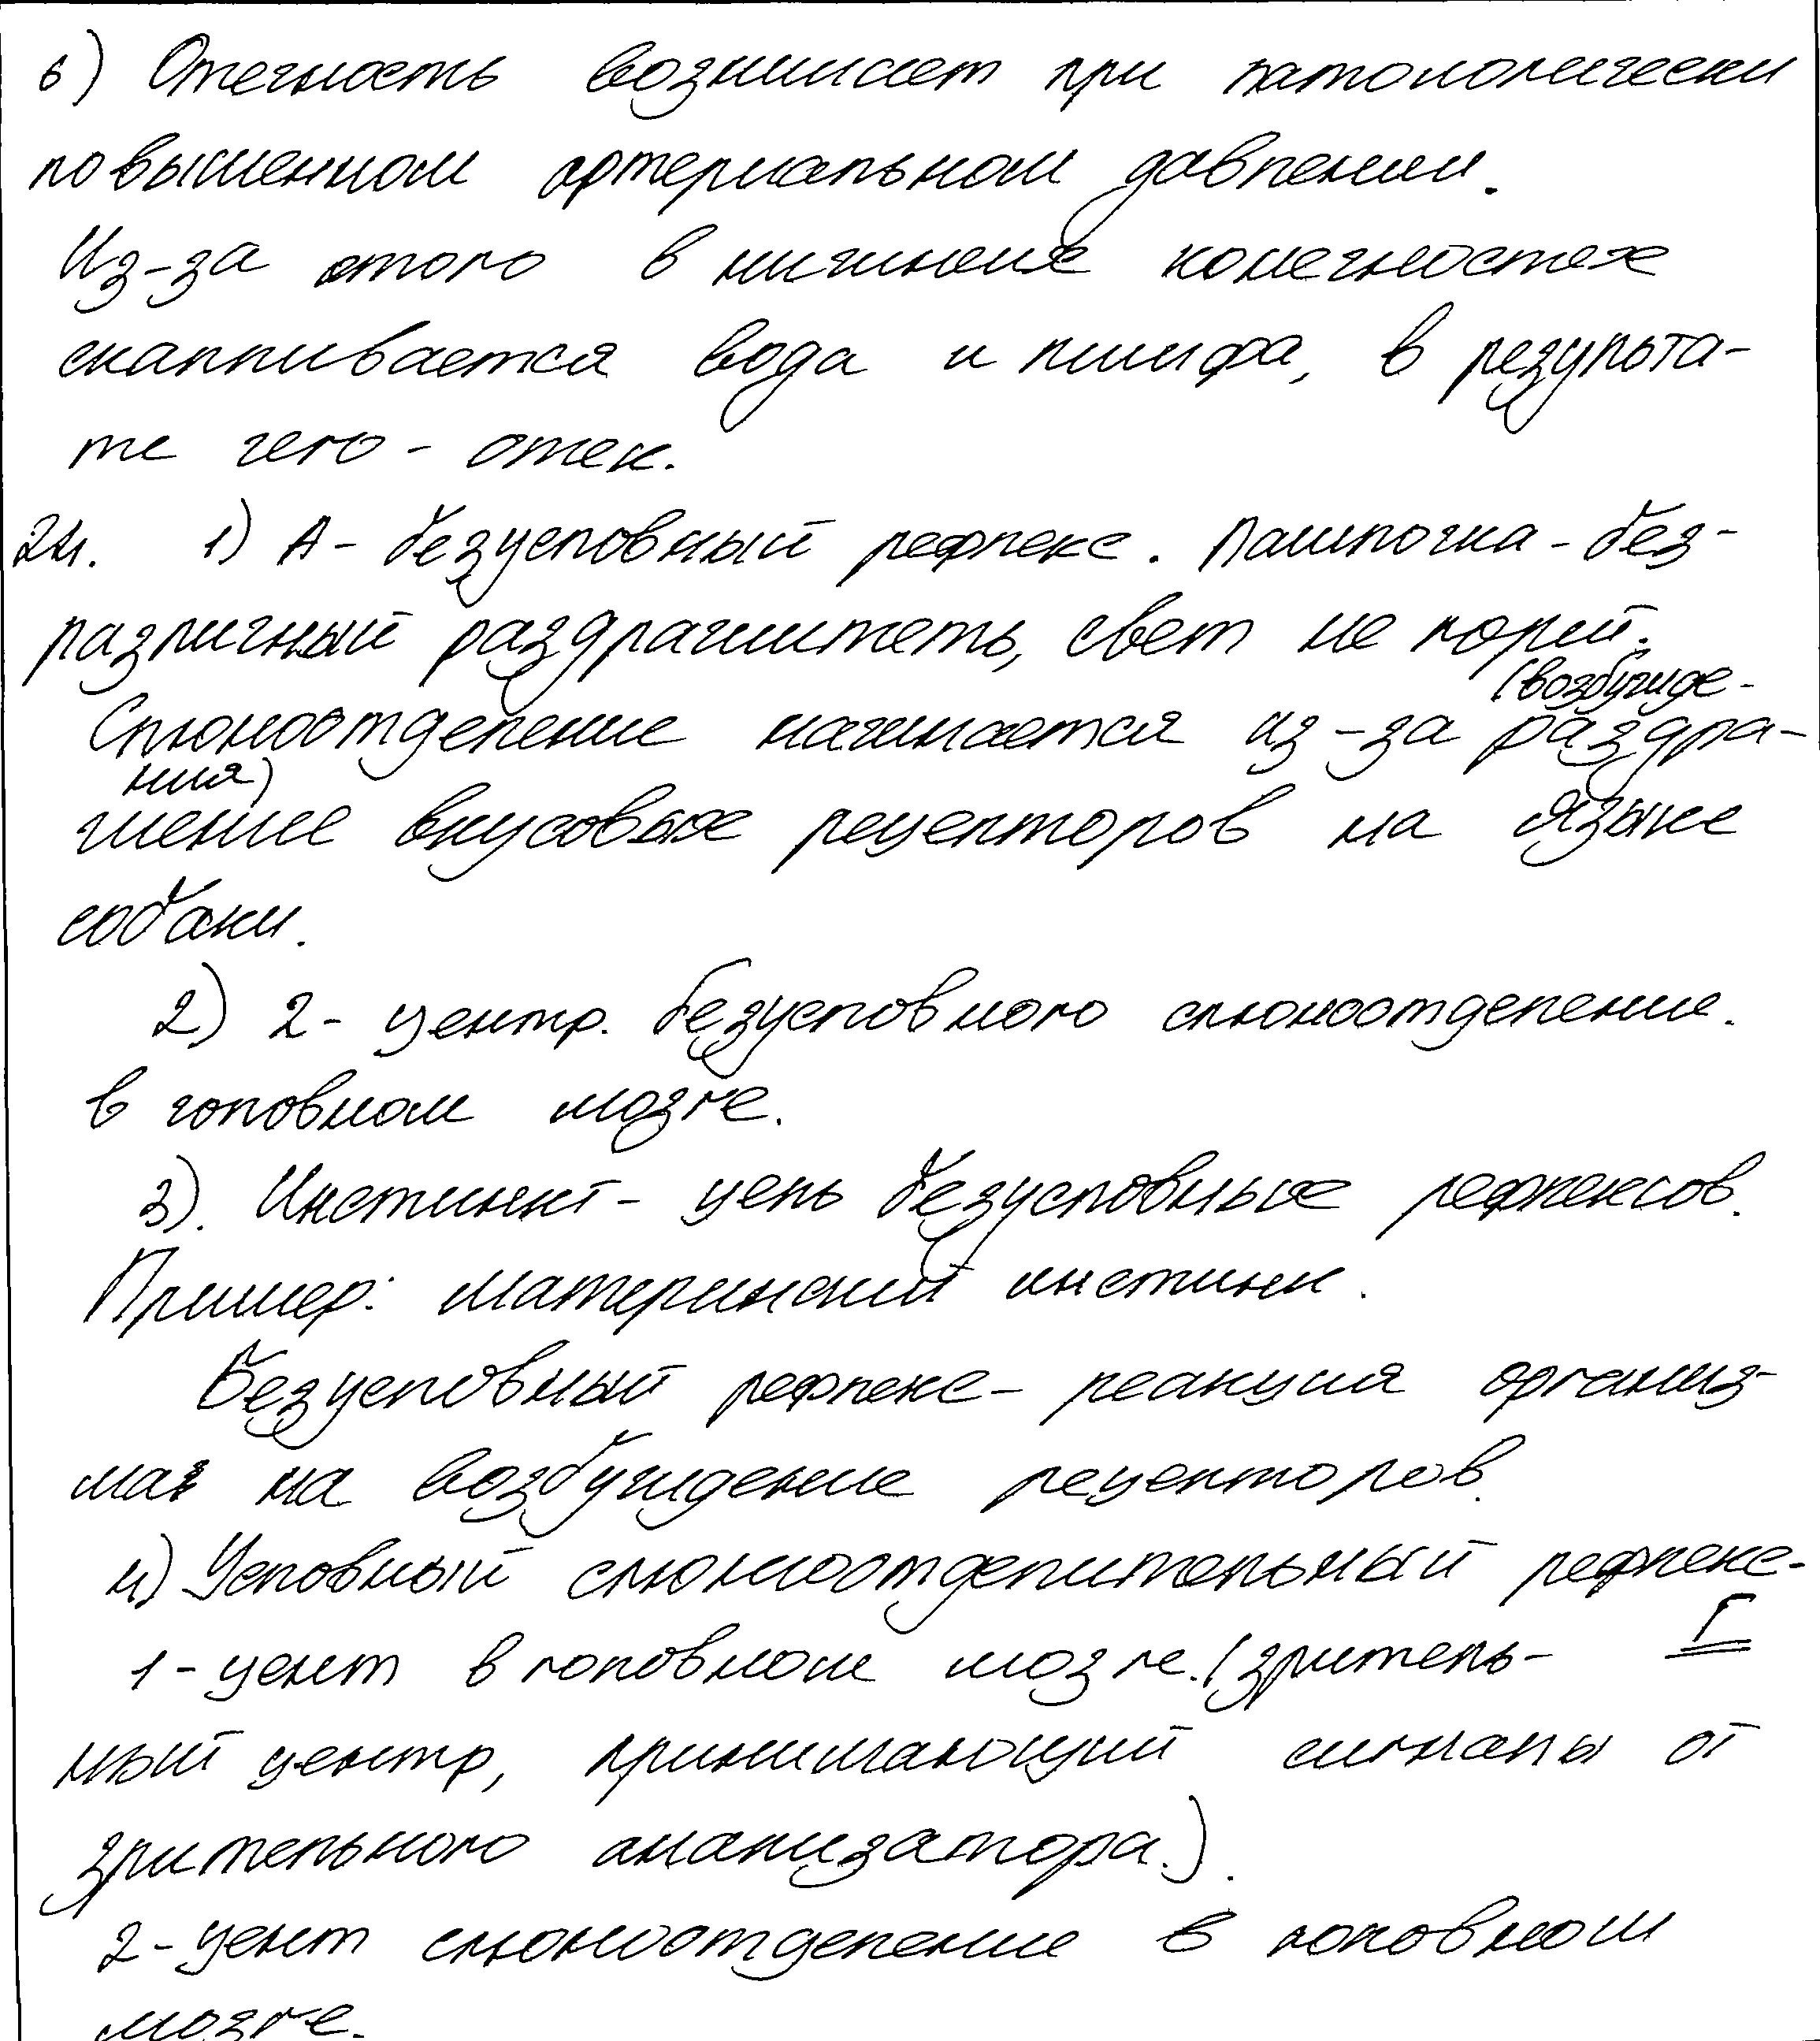 в) Отечность возникает при патологически
повышенном артериальном давлении.
Из-за этого в нижних конечностях
скапливается вода и лимфа, в результа-
те чего - отек.
24. 1) А - безусловный рефлекс. Лампочка - без-
различный раздражитель, свет не горит.
(возбужде-
Слюноотделение начинается из-за раздра-
ния)
жение вкусовых рецепторов на языке
собаки.
2) 2 - центр. безусловного слюноотделение.
в головном мозге.
3). Инстинкт - цепь безусловных рефлексов.
Пример: материнский инстинк.
Безусловный рефлекс - реакция организ-
ма на возбуждение рецепторов.
4) Условный слюноотделительный рефлекс -
Г
1 - цент в головном мозге. (зритель-
ный центр, принимающий сигналы от
зрительного анализатора.).
2 - цент слюноотделение в головном
мозге.